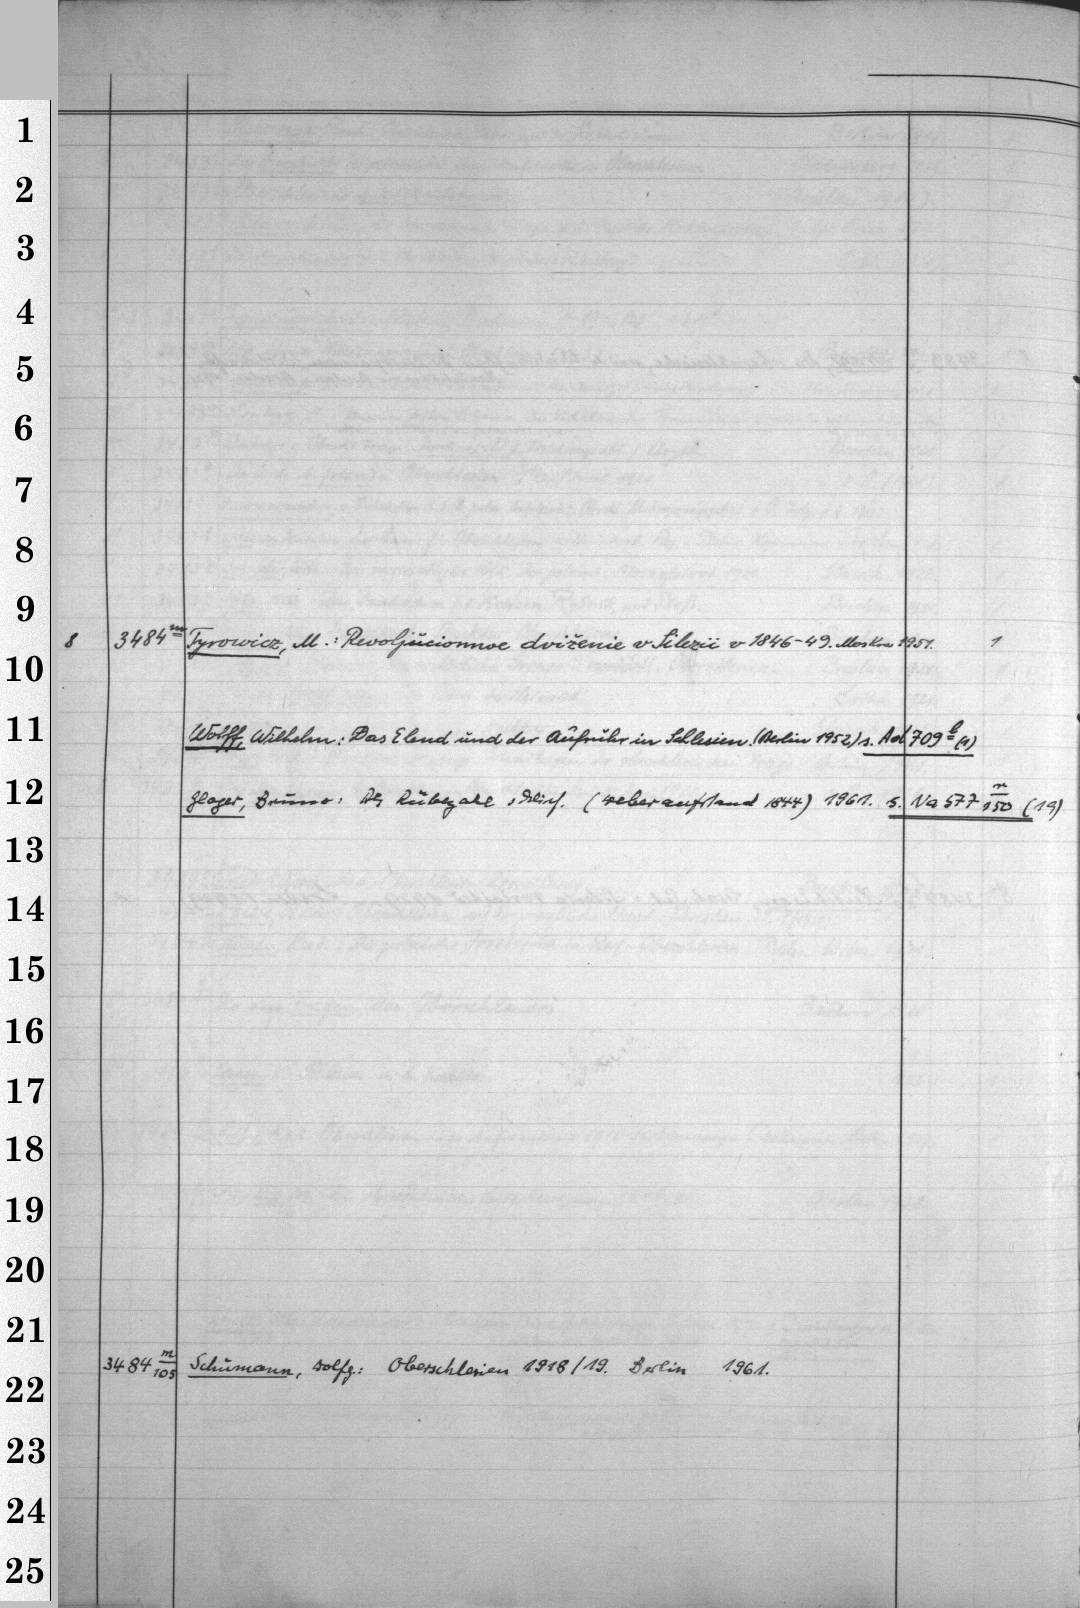 1
2
3
4
5
6
7
8
9
8 3484 m Tyrowicz, M.: Revoljucionnoe dviženie v Silezii v 1846-49. Moskva 1951. 1
10
11 Wolff, Wilhelm: Das Elend und der Aufruhr in Schlesien. (Berlin 1952) s. Ad 709 b (1)
12 Gloger, Bruno: Als Rübezahl schlief. (Weberaufstand 1844) 1961. s. Na 577 n/150 (19)
13
14
15
16
17
18
19
20
21
3484 m/105 Schumann, Wolfg.: Oberschlesien 1918/19. Berlin 1961.
22
23
24
25